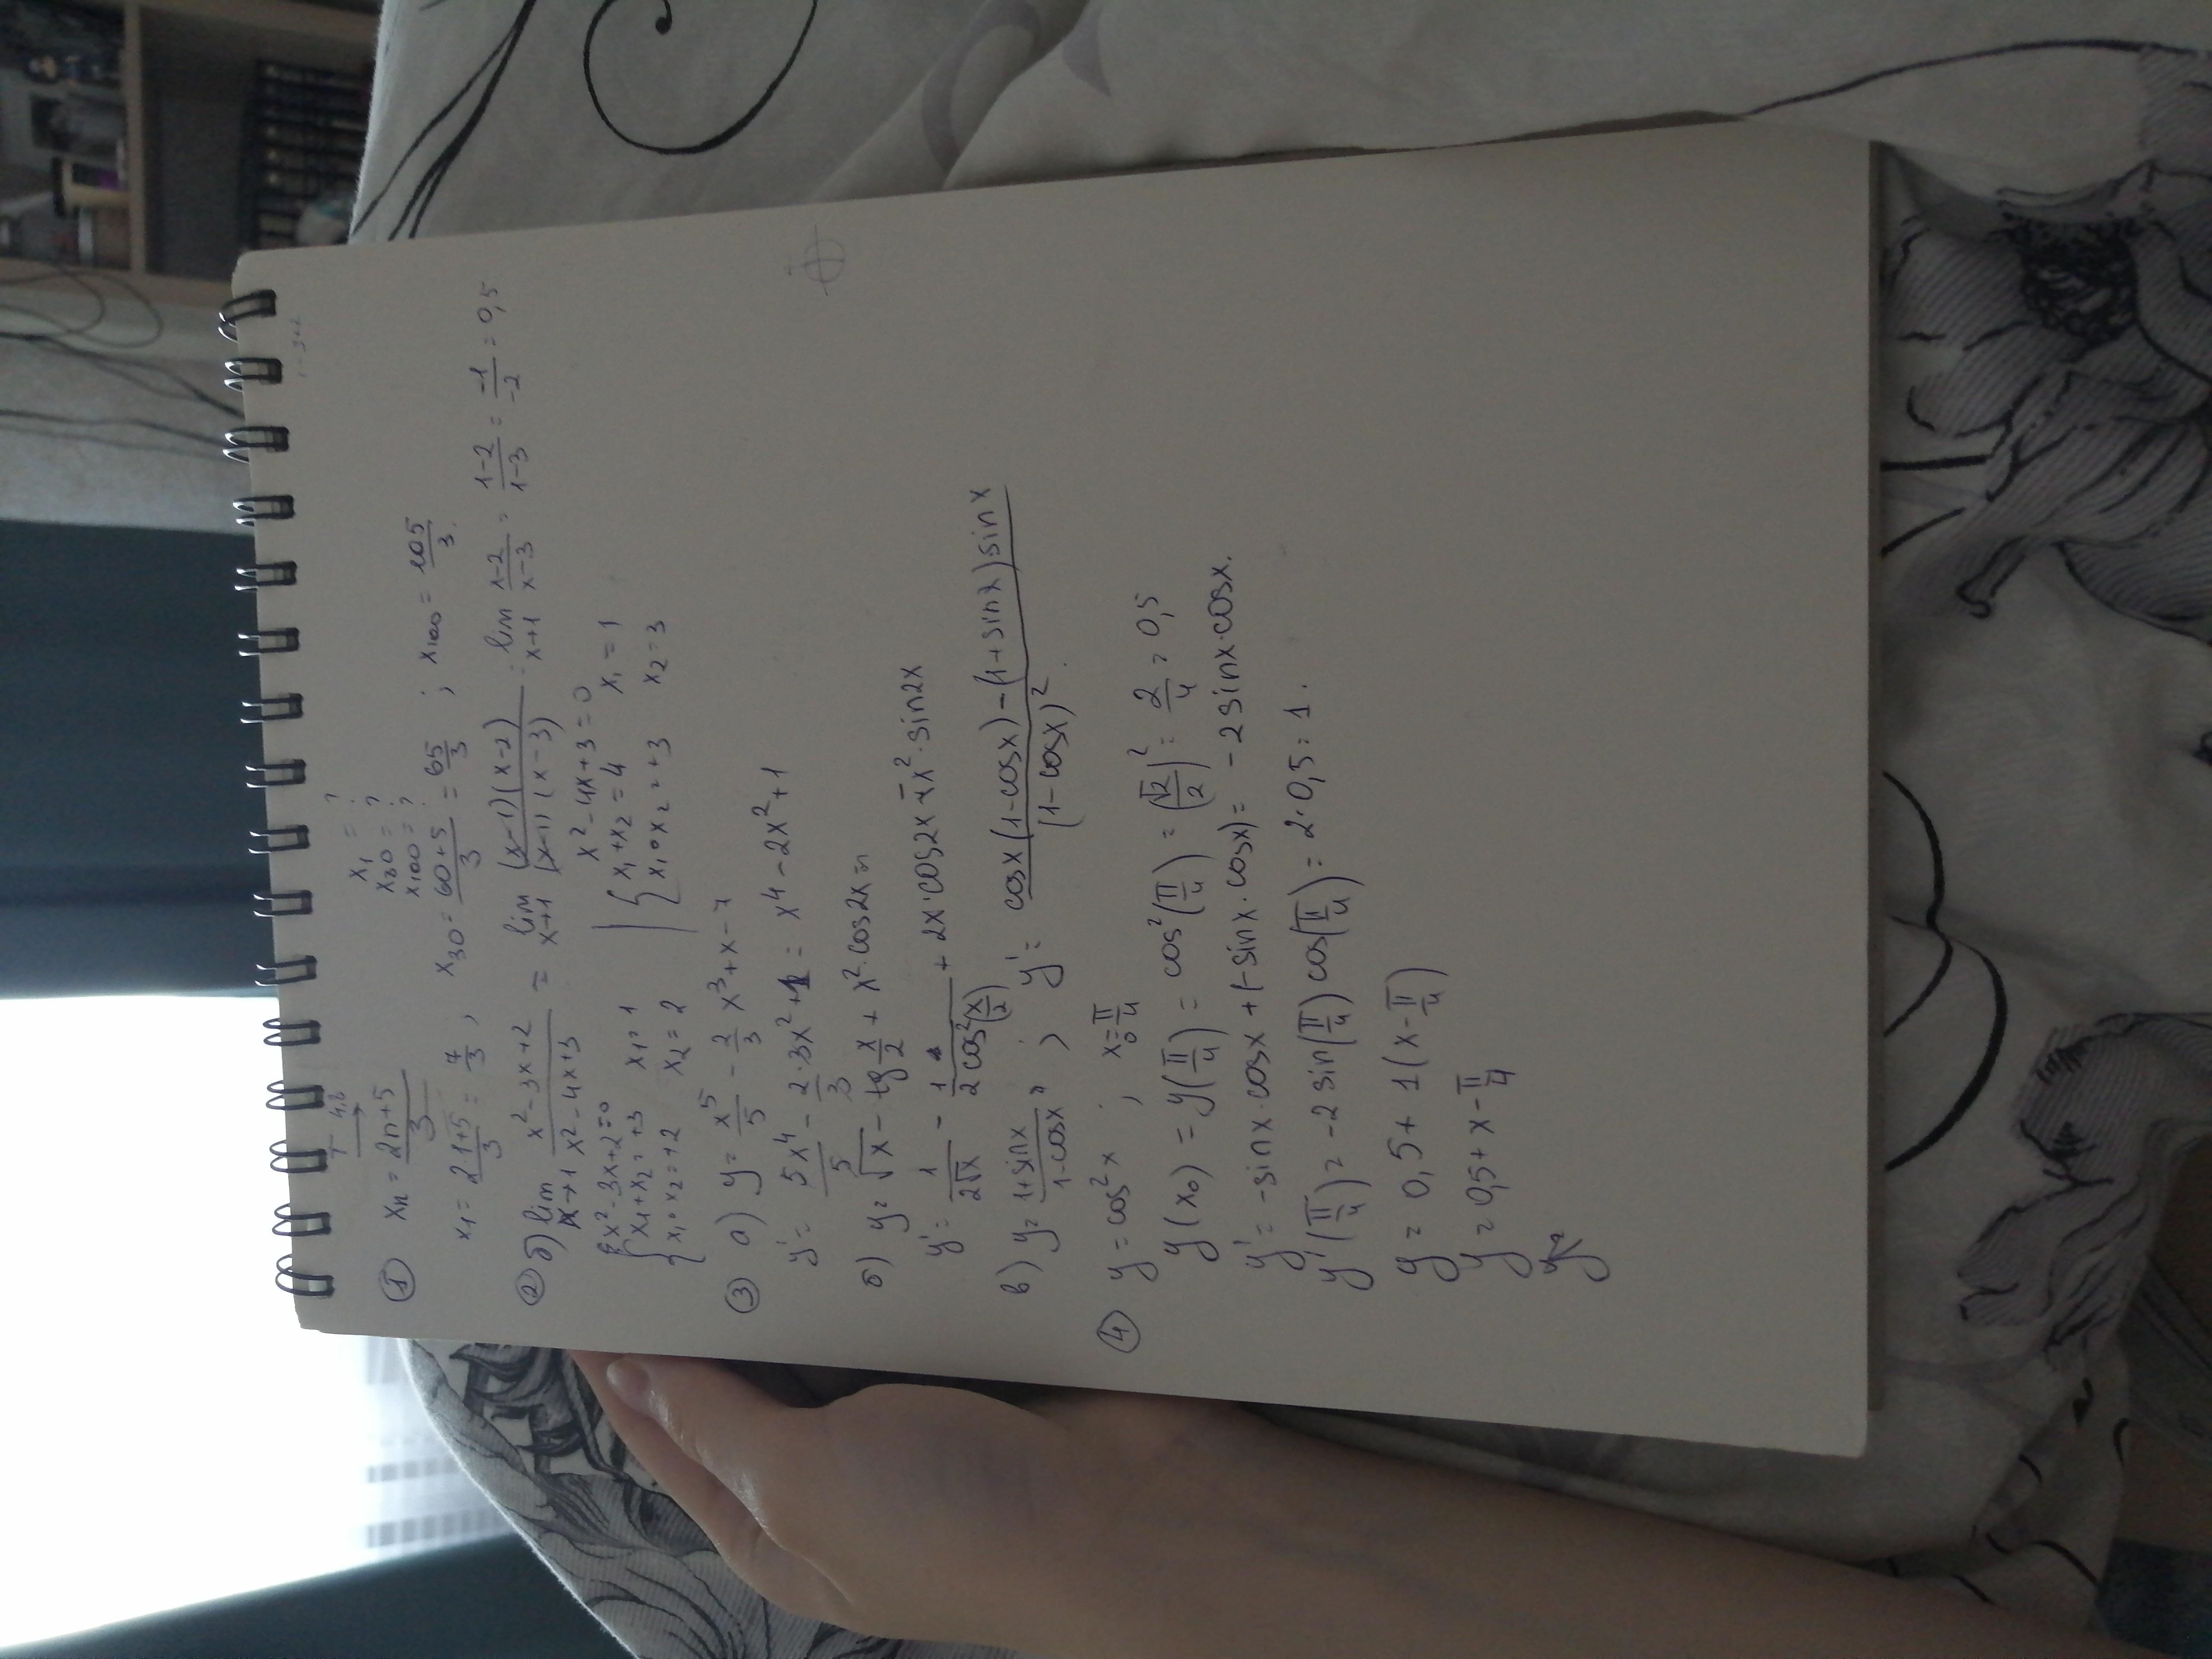 ① xₙ = (2n+5)/3 x₁ = ?
x₃₀ = ?
x₁₀₀ = ?
x₁ = (2·1+5)/3 = 7/3 ; x₃₀ = (60+5)/3 = 65/3 ; x₁₀₀ = 205/3.
② б) lim x→1 (x²-3x+2)/(x²-4x+3) = lim x→1 ((x-1)(x-2))/((x-1)(x-3)) = lim x→1 (x-2)/(x-3) = (1-2)/(1-3) = -1/-2 = 0,5
x²-3x+2=0 x²-4x+3=0
{ x₁+x₂=+3 x₁=1 | { x₁+x₂=4 x₁=1
{ x₁·x₂=+2 x₂=2 | { x₁·x₂=+3 x₂=3
③ а) y = x⁵/5 - 2/3 x³+x-7
y' = 5x⁴/5 - 2·3x²/3 + 1 = x⁴-2x²+1
б) y = √x - tg x/2 + x²·cos2x =
y' = 1/(2√x) - 1/(2cos²(x/2)) + 2x·cos2x - x²·sin2x
в) y = (1+sinx)/(1-cosx) ; y' = (cosx(1-cosx)-(1+sinx)sinx)/(1-cosx)².
④ y = cos²x ; x₀=π/4
y(x₀) = y(π/4) = cos²(π/4) = (√2/2)² = 2/4 = 0,5
y' = -sinx·cosx+(-sinx·cosx) = -2sinx·cosx.
y'(π/4) = -2sin(π/4)cos(π/4) = 2·0,5=1.
y = 0,5+1(x-π/4)
y = 0,5+x-π/4